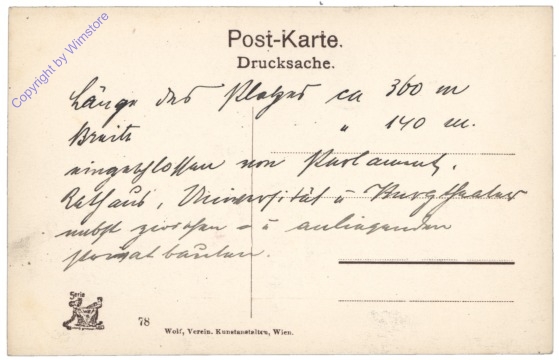 Copyright by Wimstore
Post-Karte.
Drucksache.
Länge des Platzes ca 360 m
Breite " 140 m.
eingeschlossen von Parlament,
Rathaus, Universität u Burgtheater
nebst zwischen = u anliegenden
privatbauten.
Serie
78
Wolf, Verein. Kunstanstalten, Wien.